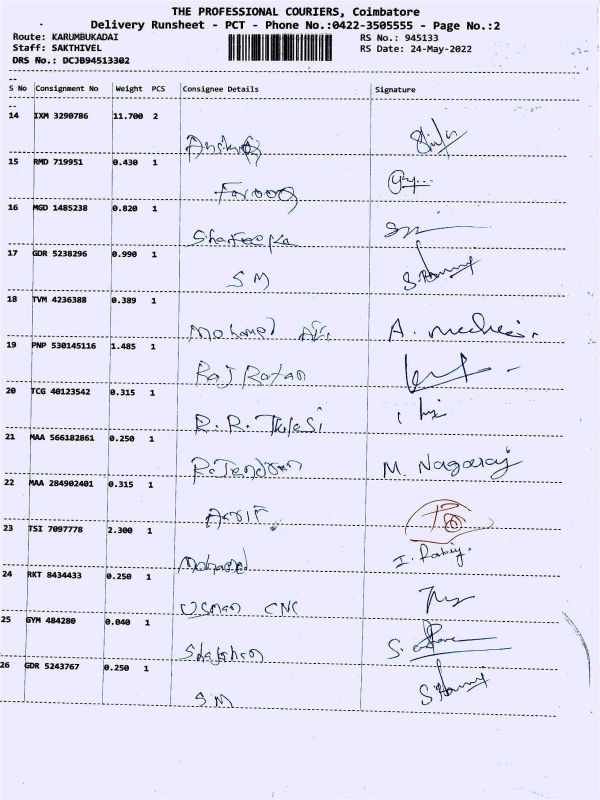 THE PROFESSIONAL COURIERS, Coimbatore
Delivery Runsheet - PCT - Phone No.:0422-3505555 - Page No.:2
Route: KARUMBUKADAI RS No.: 945133
Staff: SAKTHIVEL RS Date: 24-May-2022
DRS No.: DCJB94513302
--
S No Consignment No Weight PCS Consignee Details Signature
--
14 IXM 3290786 11.700 2
15 RMD 719951 0.430 1
Farooq
16 MGD 1485238 0.820 1
Shafeeka
17 GDR 5238296 0.990 1
S M
18 TVM 4236388 0.389 1
Mohamed
19 PNP 530145116 1.485 1
Raj Ratan
20 TCG 40123542 0.315 1
R. R. Tulasi
21 MAA 566182861 0.250 1
Rajendran M. Nagaraj
22 MAA 284902401 0.315 1
23 TSI 7097778 2.300 1
Mohamed
24 RKT 8434433 0.250 1
Usman CNC
25 GYM 484280 0.040 1
26 GDR 5243767 0.250 1
S M